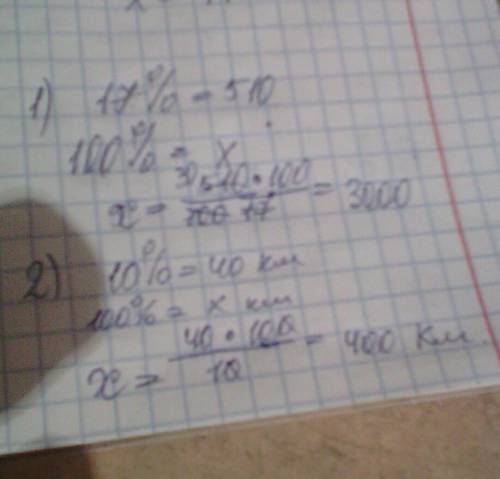 1) 17% = 510
100% = x
x = 510 • 100 / 17 = 3000
2) 10% = 40 км
100% = x км
x = 40 • 100 / 10 = 400 км